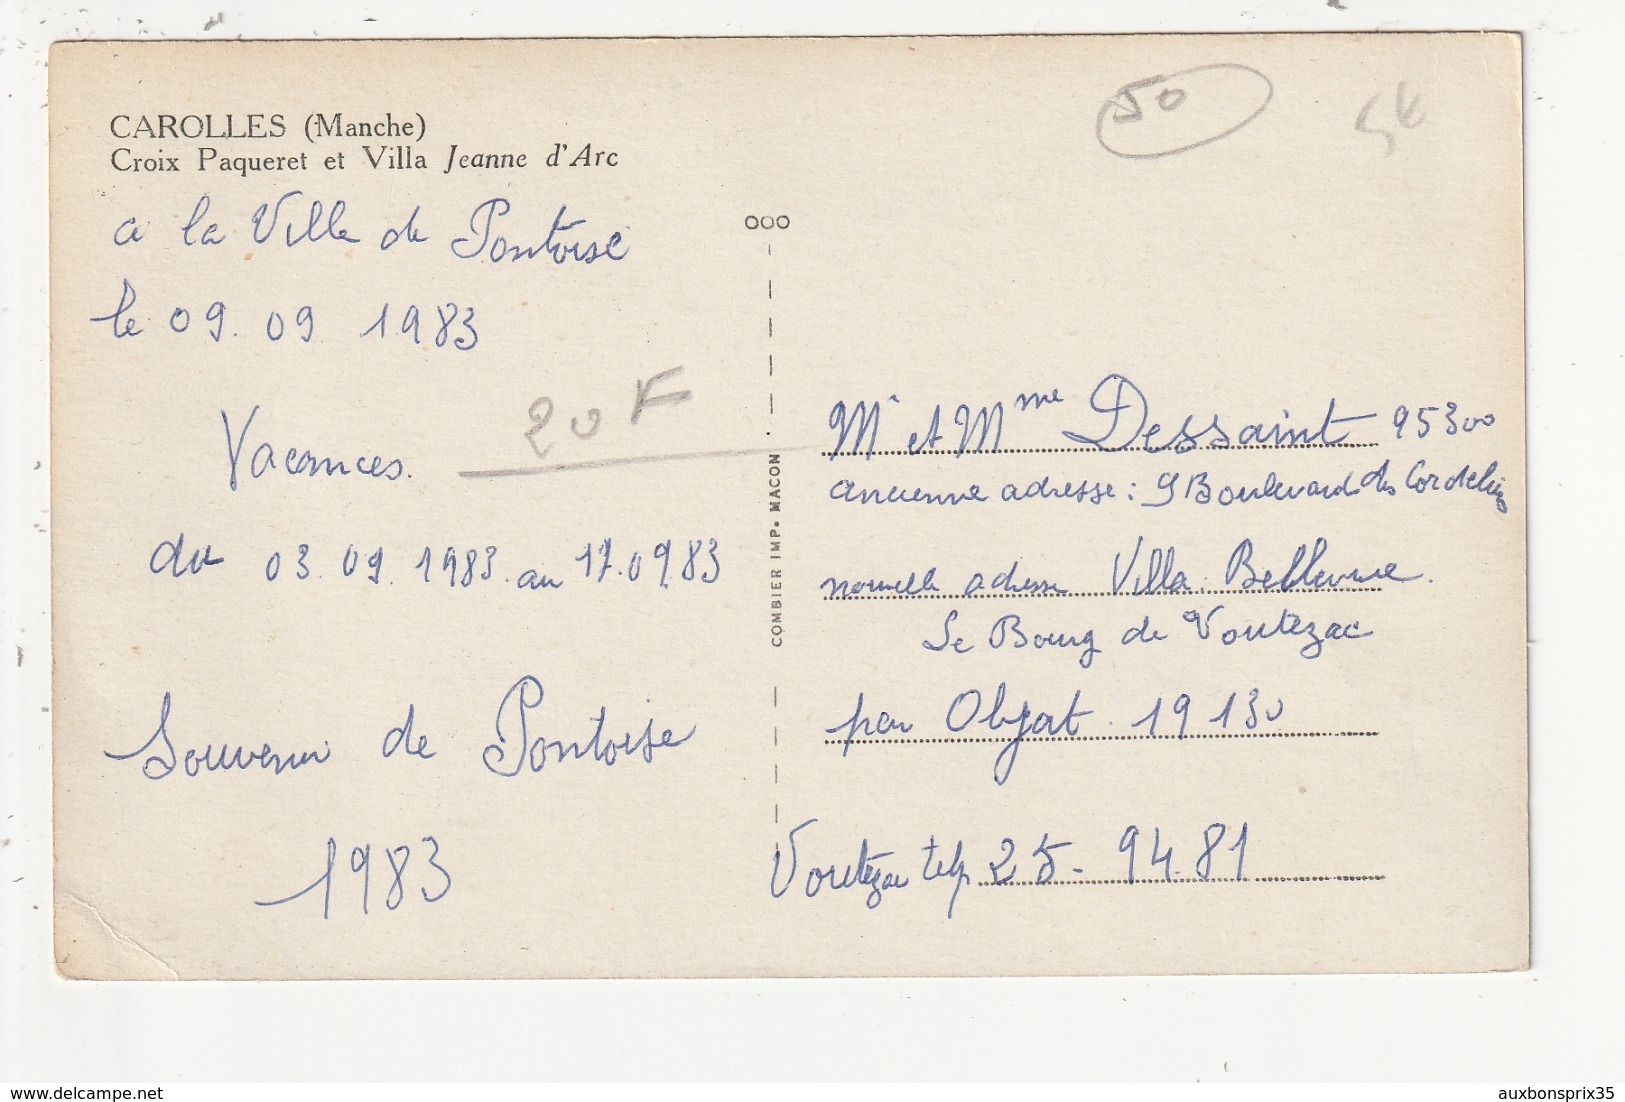 CAROLLES (Manche)
Croix Paqueret et Villa Jeanne d'Arc
a la Ville de Pontoise
le 09.09 1983
Vacances.
du 03.09.1983. au 17.09.83
Souvenir de Pontoise
1983
20 F
50
5€
COMBIER IMP. MACON
Mr et Mme Dessaint 95300
ancienne adresse : 9 Boulevard des Cordeliers
nouvelle adresse Villa Bellevue.
Le Bourg de Voutezac
par Objat. 19130
Voutezac telp 25-94.81
www.delcampe.net
auxbonsprix35